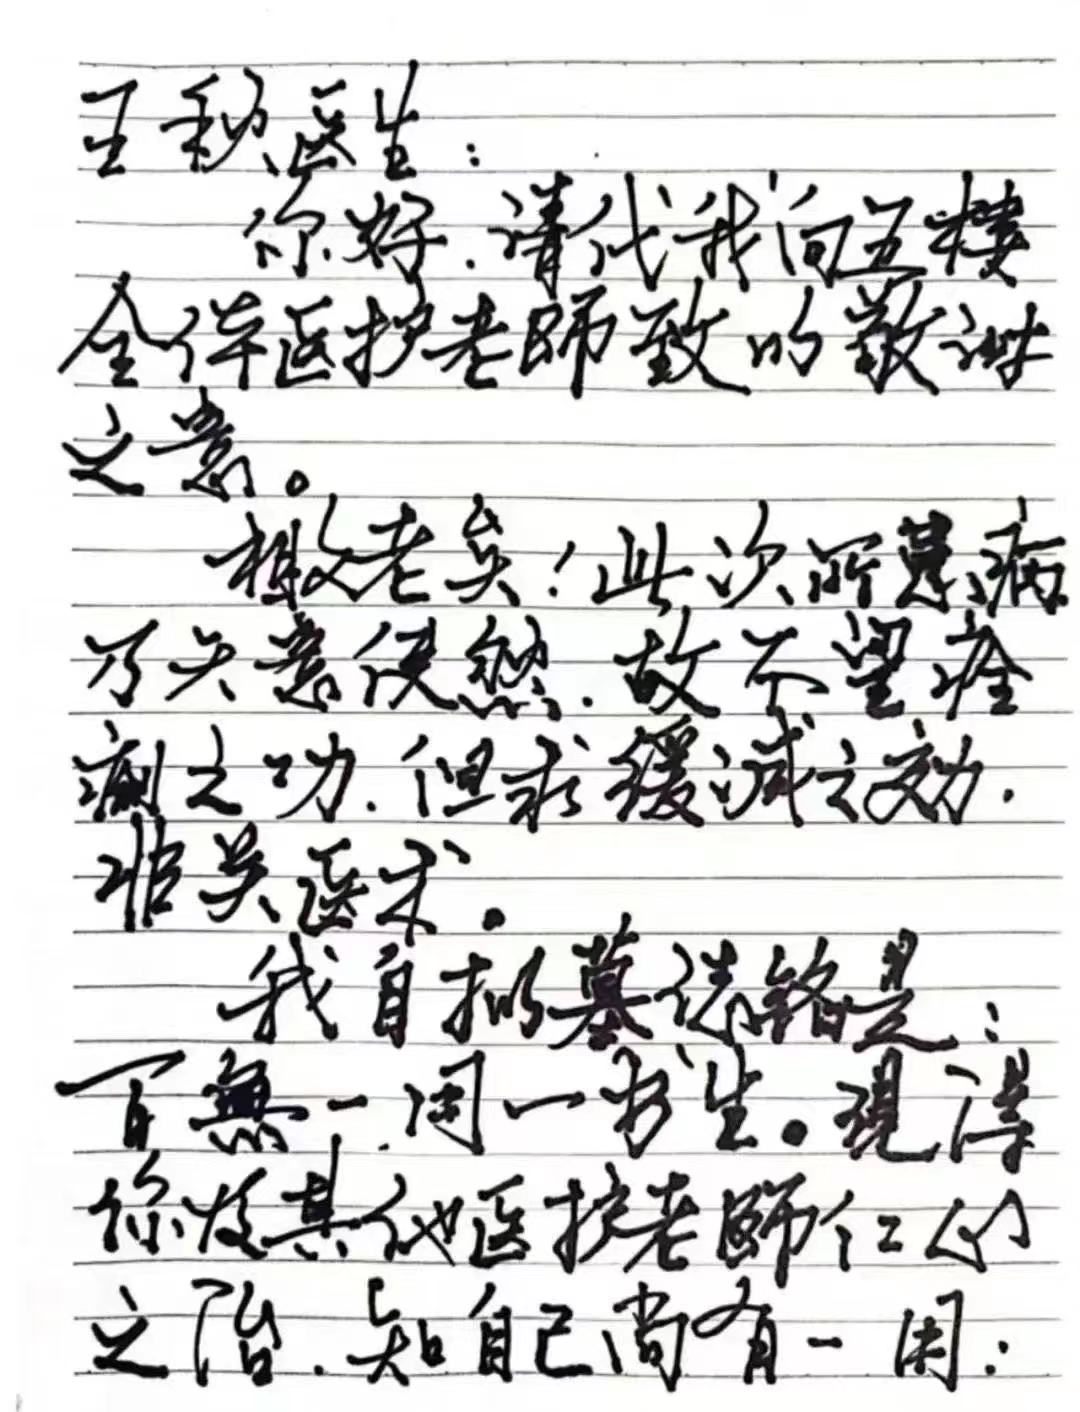 王秋医生：
你好.请代我向五楼
全体医护老师致以敬谢
之意。
老矣！此次所患病
乃天意使然.故不望痊
之功.但求缓减之效.
非关医术.
我自拟墓志铭是：
百無一用一书生。現得
你及其他医护老師仁心
之治.知自己尚有一用：